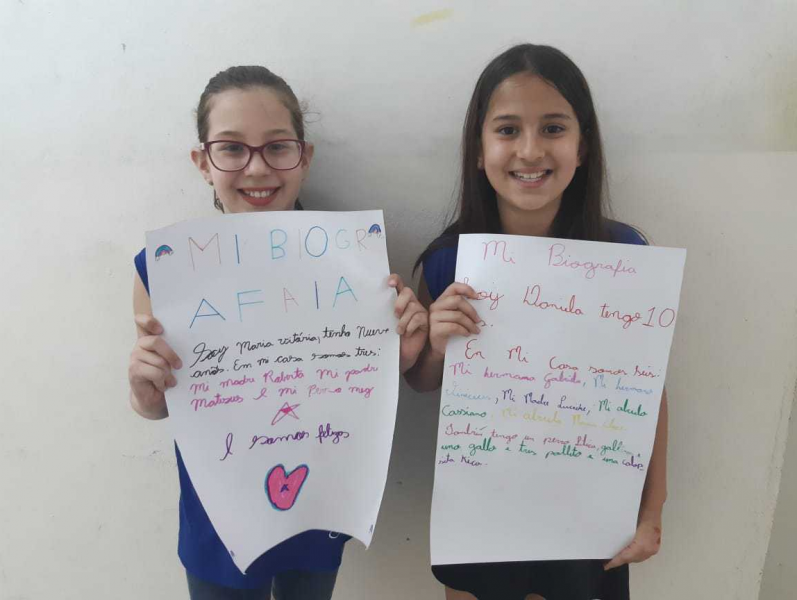 MI BIOGR
AFAIA
Soy Maria vitária, tenho nueve
anos. Em mi casa somos tres:
Mi madre Roberta Mi padre
Mateus e mi Perro meg
e somos felizes
Mi Biografia
Soy Daniela tengo 10
s.
En Mi Casa somos seis:
Mi hermana Gabriela, Mi hermano
, Mi Madre Luciene, Mi abuelo
Cassiano, Mi abuela Maria
tengo un perro
uno gallo e tres pollito e una calop
sita Kica.